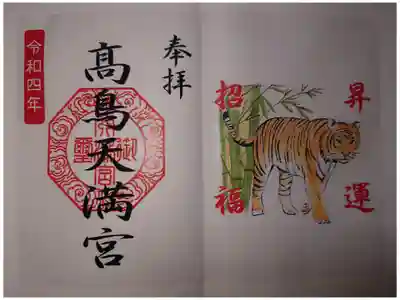 奉拝
髙鳥天満宮
令和四年
昇運
招福